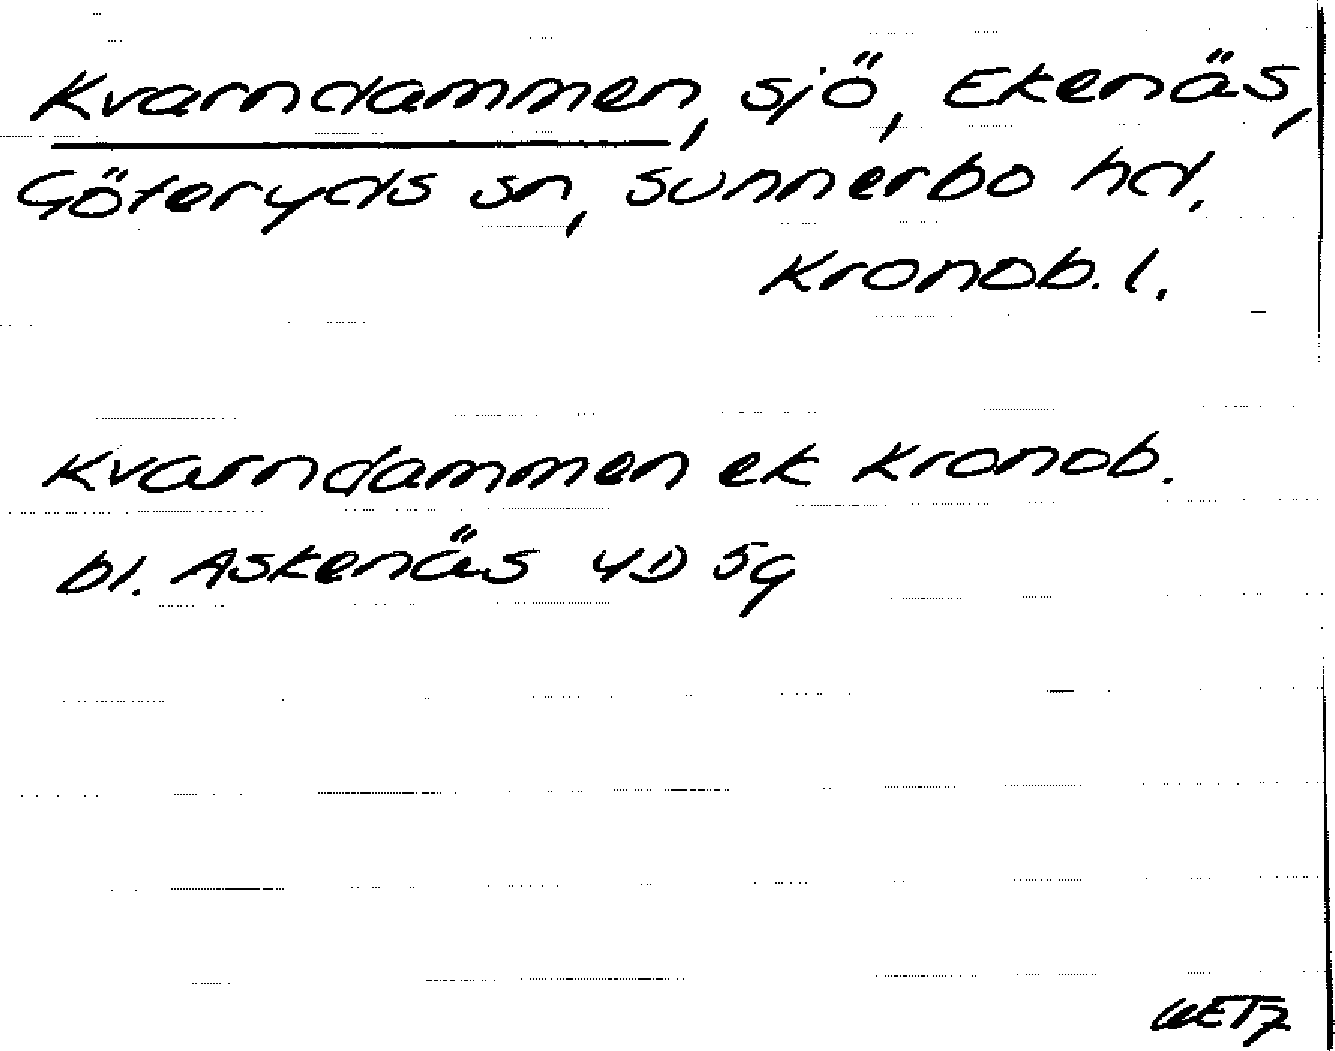 Kvarndammen, sjö, Ekenäs,
Göteryds sn, Sunnerbo hd.
Kronob. l.
Kvarndammen ek Kronob.
bl. Askenäs 4D 5g